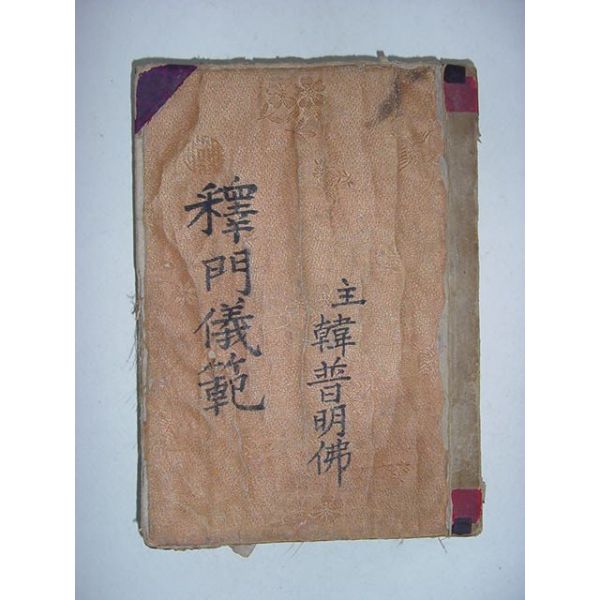 釋門儀範
主韓普明佛